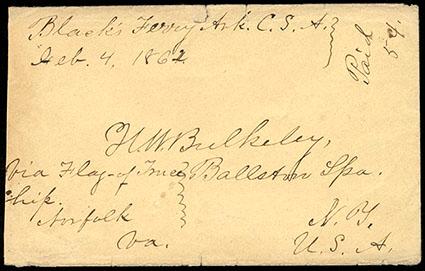 Black's Ferry Ark. C. S. A.
Feb. 4, 1862
Paid
5¢.
H W Bulkeley,
Via Flag-of Truce
Ship.
Norfolk
Va.
Ballston Spa.
N. Y.
U. S. A.